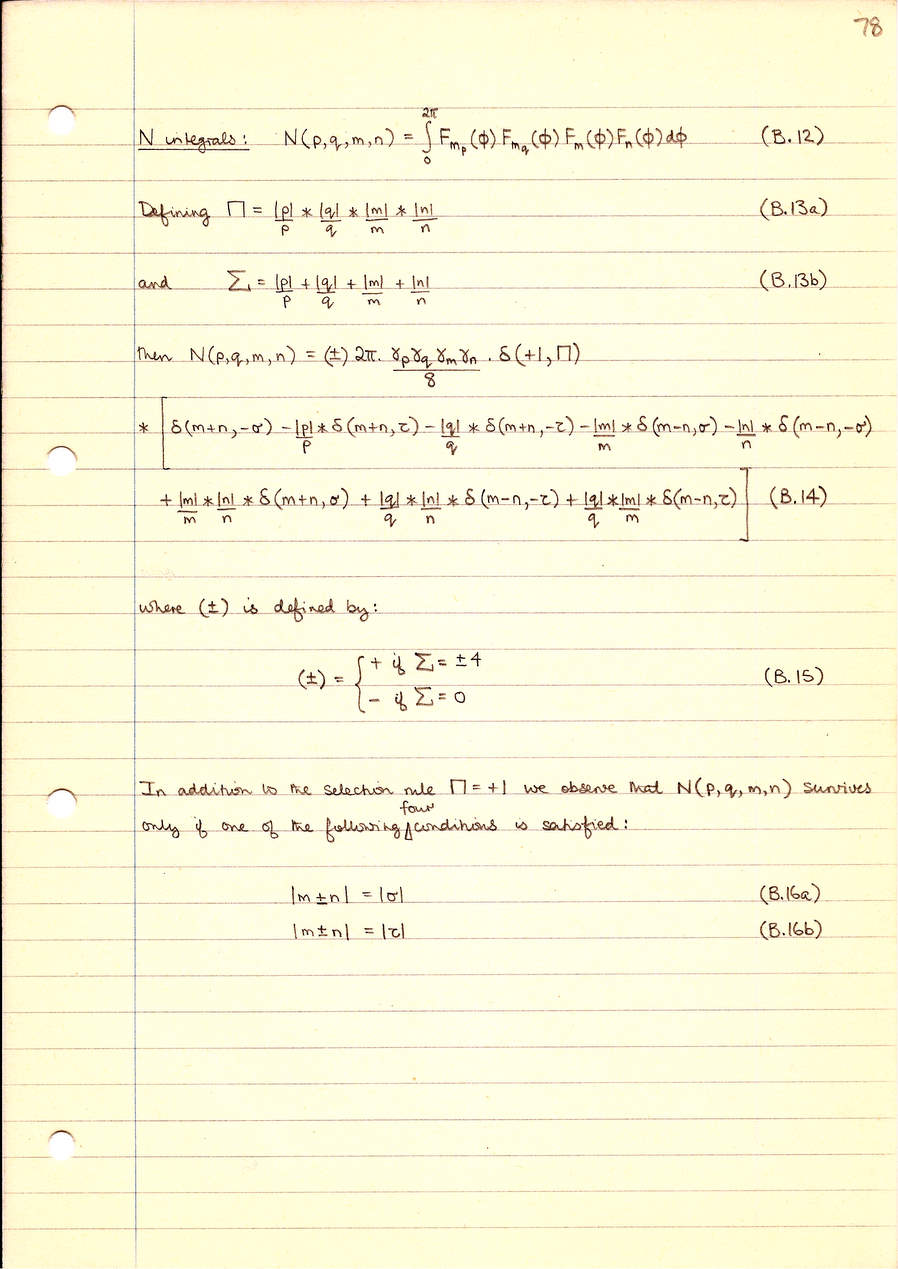 78
N integrals: N(p,q,m,n) = ∫₀^2π F_m_p(ϕ) F_m_q(ϕ) F_m(ϕ) F_n(ϕ) dϕ (B.12)
Defining Π = |p|/p * |q|/q * |m|/m * |n|/n (B.13a)
and Σ = |p|/p + |q|/q + |m|/m + |n|/n (B.13b)
then N(p,q,m,n) = (±) 2π. γ_p γ_q γ_m γ_n / 8 . δ(+1, Π)
* [ δ(m+n, -σ) - |p|/p * δ(m+n, τ) - |q|/q * δ(m+n, -τ) - |m|/m * δ(m-n, σ) - |n|/n * δ(m-n, -σ)
+ |m|/m * |n|/n * δ(m+n, σ) + |q|/q * |n|/n * δ(m-n, -τ) + |q|/q * |m|/m * δ(m-n, τ) ] (B.14)
where (±) is defined by:
(±) = { + if Σ = ±4
- if Σ = 0 (B.15)
In addition to the selection rule Π = +1 we observe that N(p,q,m,n) survives
only if one of the following four conditions is satisfied:
|m±n| = |σ| (B.16a)
|m±n| = |τ| (B.16b)